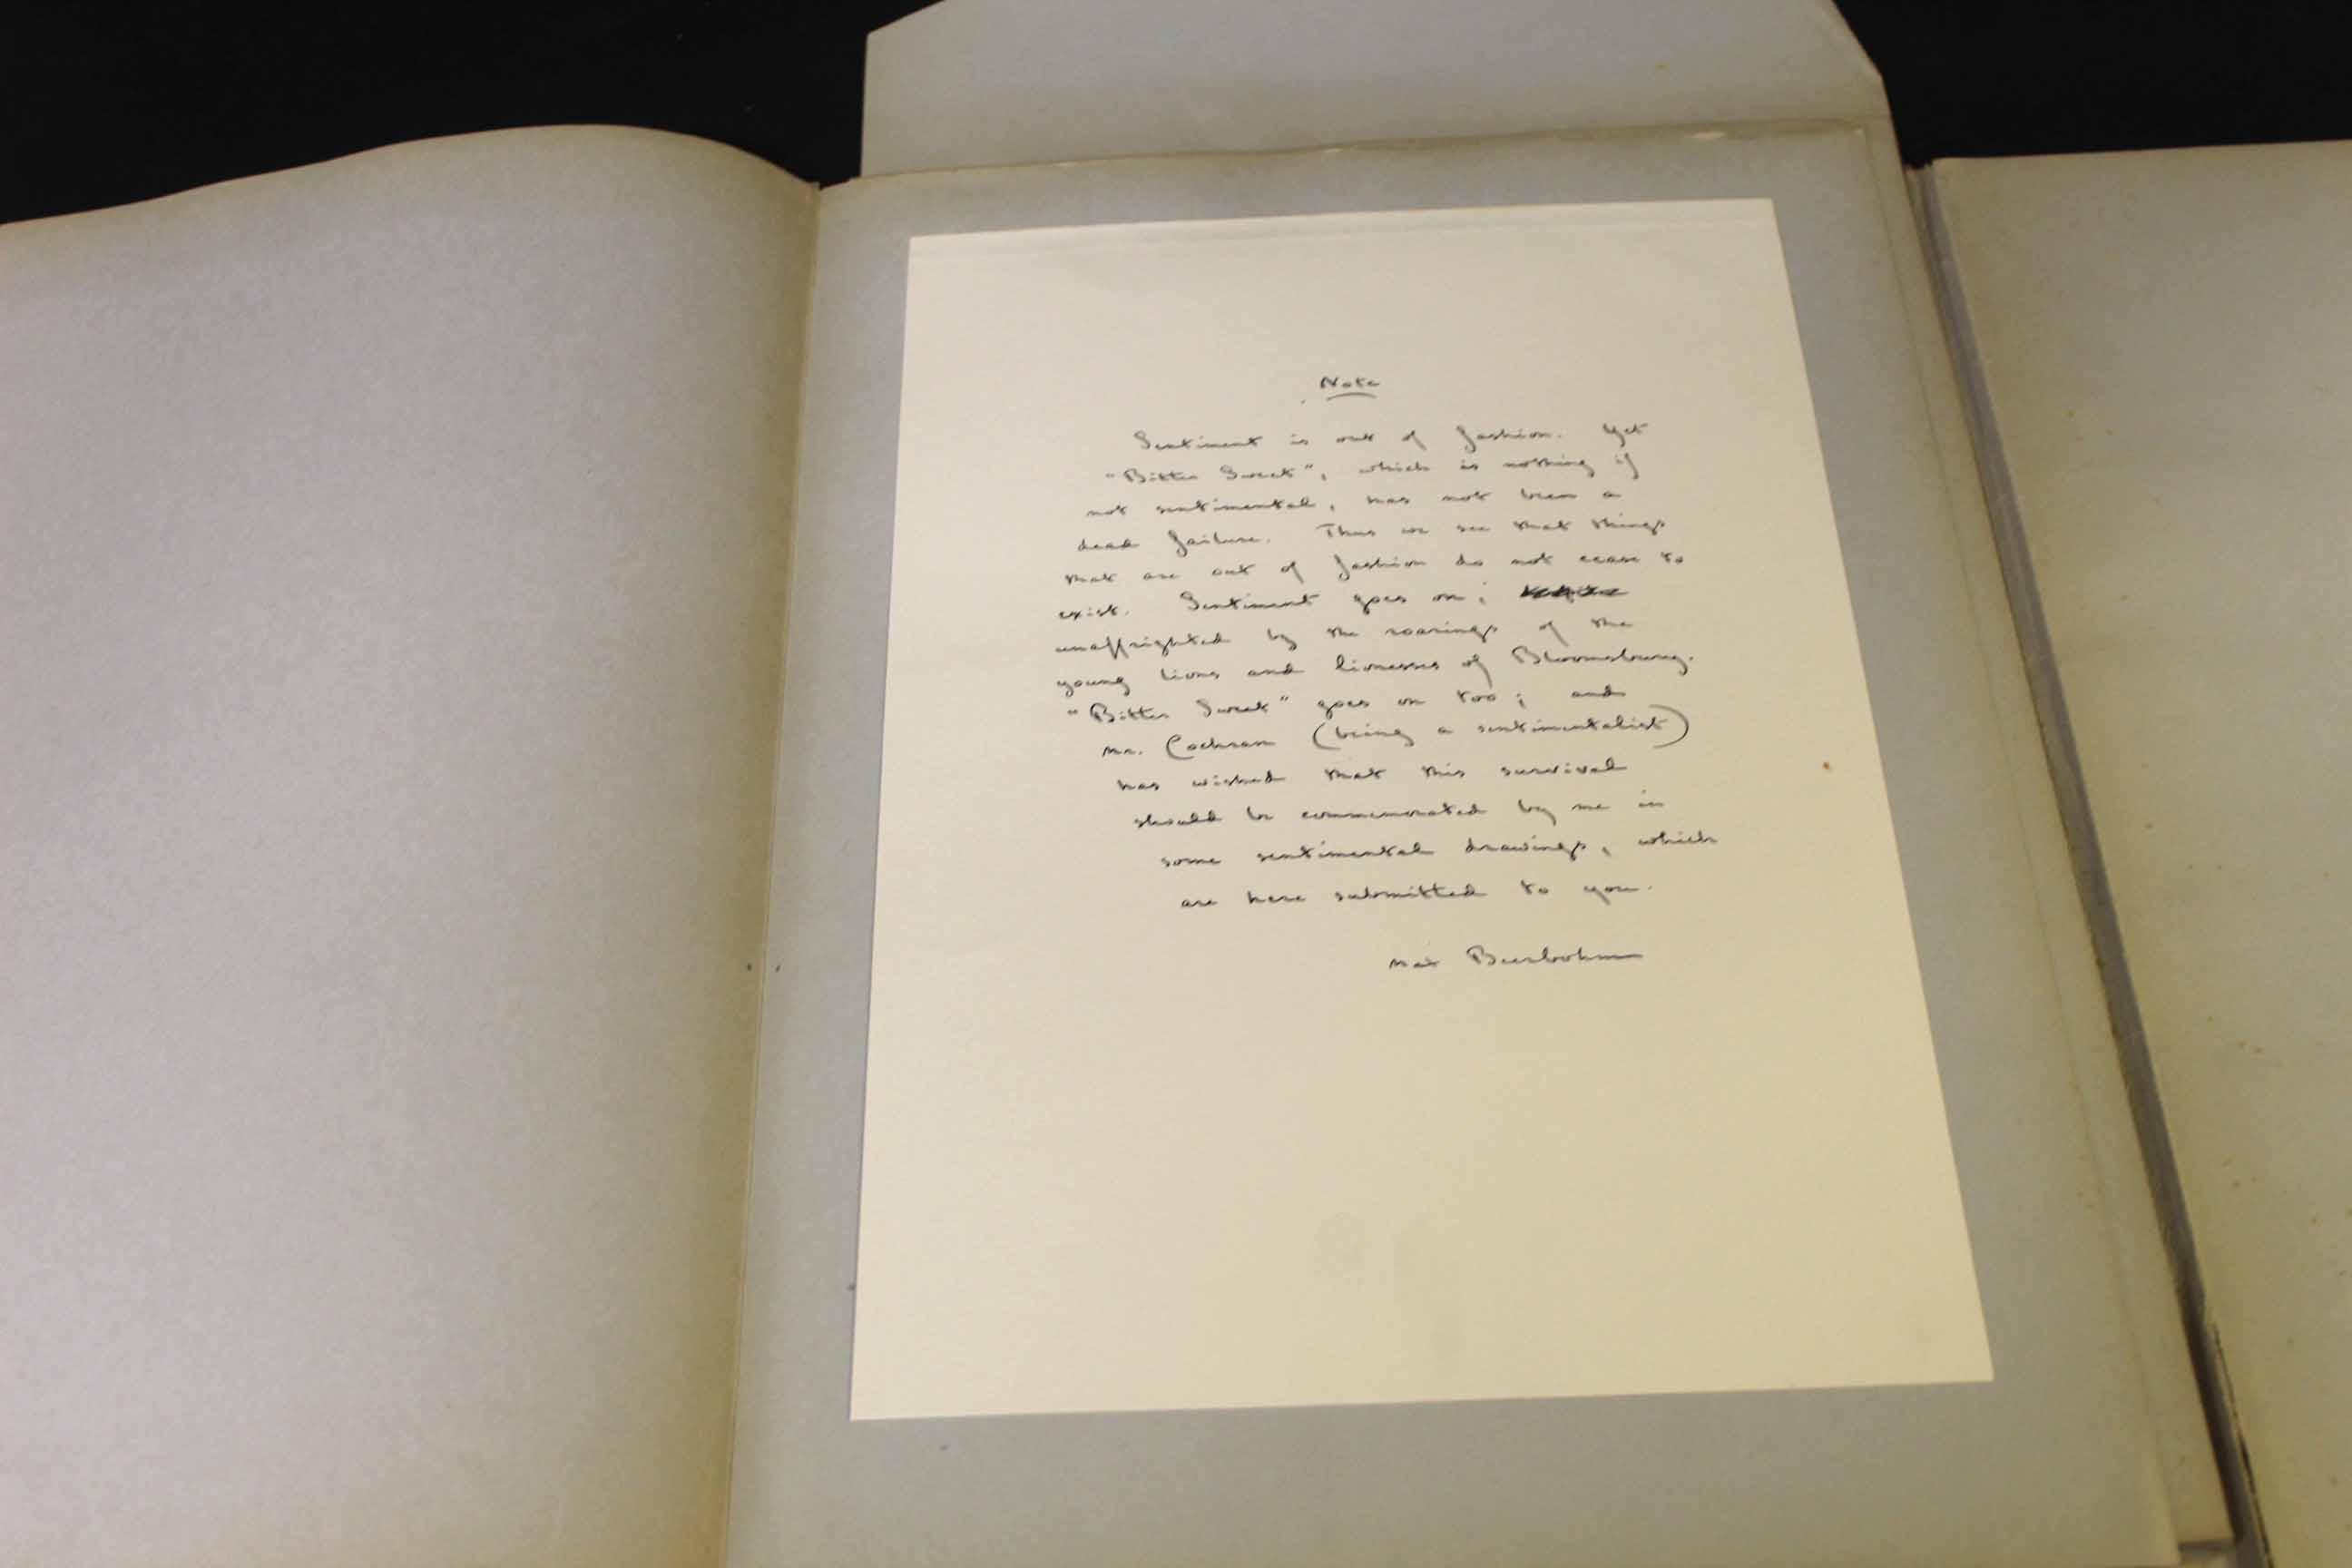 Note
Sentiment is out of fashion. Yet
"Bitter Sweet", which is nothing if
not sentimental, has not been a
dead failure. Thus we see that things
that are out of fashion do not cease to
exist. Sentiment goes on;
unaffrighted by the roarings of the
young lions and lionesses of Bloomsbury.
"Bitter Sweet" goes on too; and
Mr. Cochran (being a sentimentalist)
has wished that this survival
should be commemorated by me in
some sentimental drawings, which
are here submitted to you.
Max Beerbohm